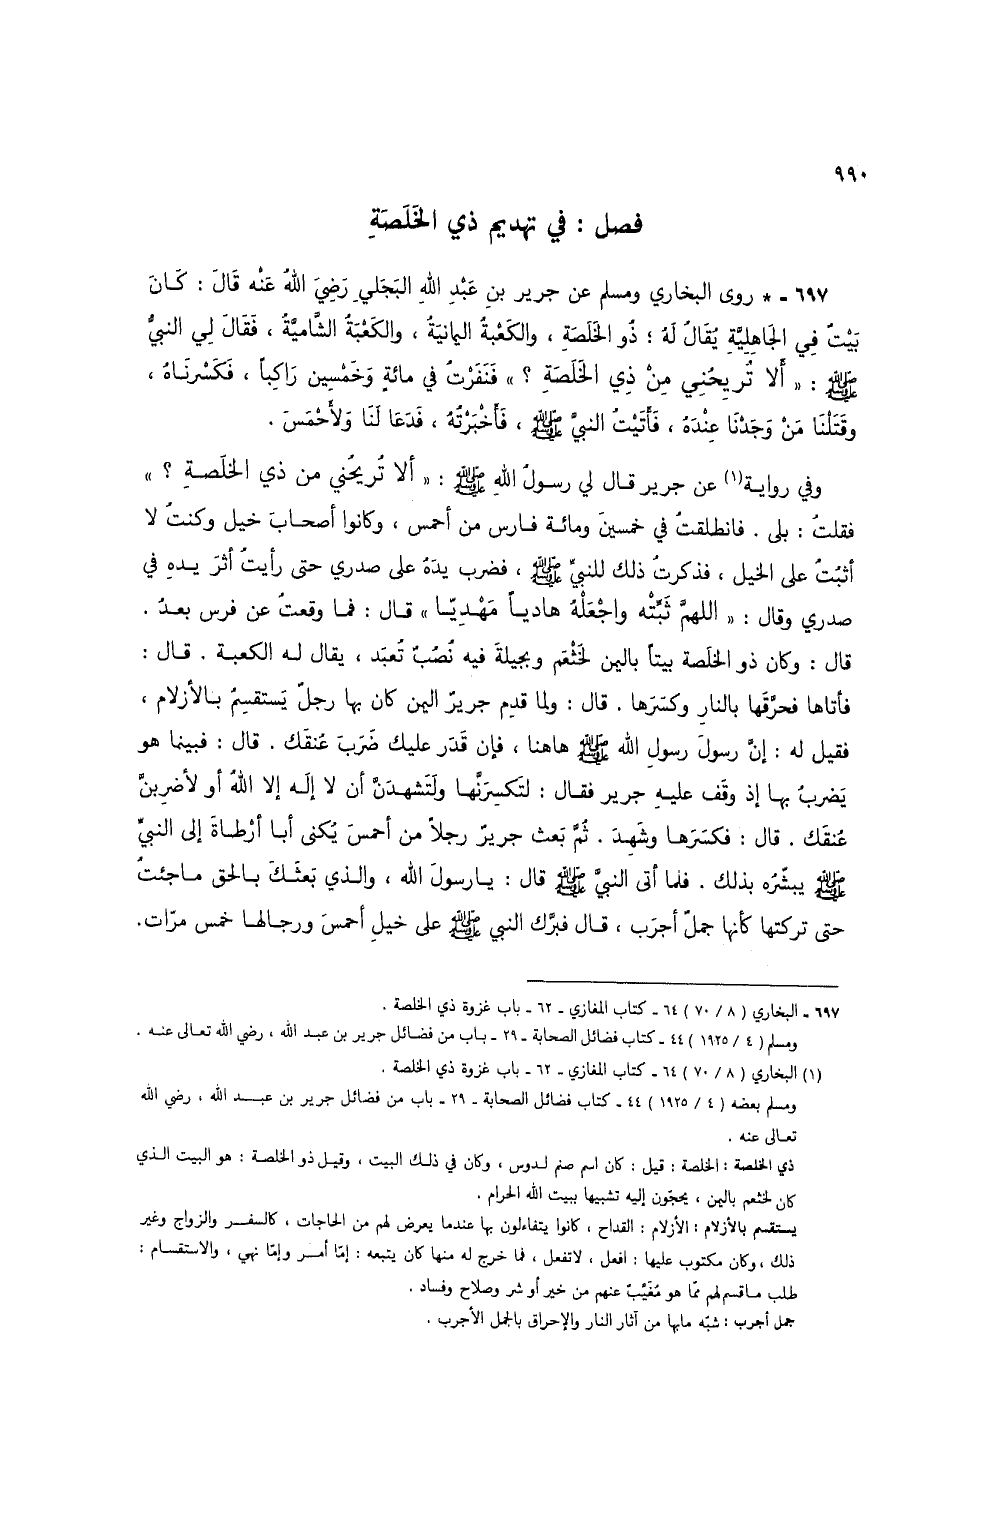 ٩٩٠
فصل : في تهديم ذي الخَلَصَةِ
٦٩٧ - * روى البخاري ومسلم عن جرير بنِ عَبْدِ اللهِ البَجَلي رَضِيَ اللهُ عَنْه قَالَ : كَانَ
بَيْتٌ فِي الجَاهِلِيَّةِ يُقَالُ لَهُ : ذُو الخَلَصَةِ ، والكَعْبَةُ اليمانِيَةُ ، والكَعْبَةُ الشَّامِيَّةُ ، فَقَالَ لِي النبيُّ
ﷺ : « أَلا تُرِيحُنِي مِنْ ذِي الخَلَصَةِ ؟ » فَنَفَرْتُ في مائةٍ وَخَمْسِين رَاكِباً ، فَكَسْرنَاهُ ،
وقَتَلْنَا مَنْ وَجَدْنَا عِنْدَهُ ، فَأَتَيْتُ النبيَّ ﷺ ، فَأَخْبَرْتُهُ ، فَدَعَا لَنَا وَلأَحْمَسَ .
وفي رواية(١) عن جرير قال لي رسولُ اللهِ ﷺ : « ألا تُريحُني من ذي الخلَصةِ ؟ »
فقلتُ : بلى . فانطلقتُ في خمسينَ ومائة فارس من أحمس ، وكانوا أصحابَ خيل وكنتُ لا
أثبُتُ على الخيل ، فذكرتُ ذلك للنبيِّ ﷺ ، فضرب يدَهُ على صدري حتى رأيتُ أثرَ يدهِ في
صدري وقال : « اللهمَّ ثَبِّتْه واجْعَلْهُ هادياً مَهْدِيّا » قال : فما وقعتُ عن فرس بعدُ .
قال : وكان ذو الخلَصة بيتاً باليمن لخثْعم وبجيلةَ فيه نُصُبٌ تُعبَد ، يقال له الكعبة . قال :
فأتاها فحرَّقَها بالنارِ وكسَرَها . قال : ولما قدِم جريرٌ اليمن كان بها رجلٌ يَستقسِمُ بالأزلام ،
فقيل له : إنَّ رسولَ رسولِ الله ﷺ هاهنا ، فإن قَدَر عليك ضَرَبَ عُنقَك . قال : فبينما هو
يَضربُ بها إذ وقَف عليه جرير فقال : لتَكسِرَنَّها ولَتَشهدَنَّ أن لا إلَه إلا اللهُ أو لأضرِبنَّ
عُنقَك . قال : فكسَرَها وشَهِدَ . ثُمَّ بَعث جريرٌ رجلاً من أحمسَ يُكنى أبا أرْطاةَ إلى النبيِّ
ﷺ يبشّرُه بذلك . فلما أتى النبيَّ ﷺ قال : يارسولَ الله ، والذي بَعثَكَ بالحق ماجئتُ
حتى تركتها كأنها جملٌ أجرَب ، قال فبرَّك النبي ﷺ على خيلِ أحمسَ ورجالها خمس مرّات.
٦٩٧ - البخاري ( ٨ / ٧٠ ) ٦٤ - كتاب المغازي - ٦٢ - باب غزوة ذي الخلصة .
ومسلم ( ٤ / ١٩٢٥ ) ٤٤ - كتاب فضائل الصحابة - ٢٩ - باب من فضائل جرير بن عبد الله ، رضي الله تعالى عنه .
(١) البخاري ( ٨ / ٧٠ ) ٦٤ - كتاب المغازي - ٦٢ - باب غزوة ذي الخلصة .
ومسلم بعضه ( ٤ / ١٩٢٥ ) ٤٤ - كتاب فضائل الصحابة - ٢٩ - باب من فضائل جرير بن عبد الله ، رضي الله
تعالى عنه .
ذي الخلصة : الخلصة : قيل : كان اسم صنم لدوس ، وكان في ذلك البيت ، وقيل ذو الخلصة : هو البيت الذي
كان لخثعم باليمن ، يحجّون إليه تشبيها ببيت الله الحرام .
يستقسم بالأزلام : الأزلام : القداح ، كانوا يتفاءلون بها عندما يعرض لهم من الحاجات ، كالسفر والزواج وغير
ذلك ، وكان مكتوب عليها : افعل ، لاتفعل ، فما خرج له منها كان يتبعه : إمّا أمر وإمّا نهي ، والاستقسام :
طلب ماقسم لهم ممّا هو مُغَيَّبٌ عنهم من خير أو شر وصلاح وفساد .
جمل أجرب : شبّه مابها من آثار النار والإحراق بالجمل الأجرب .